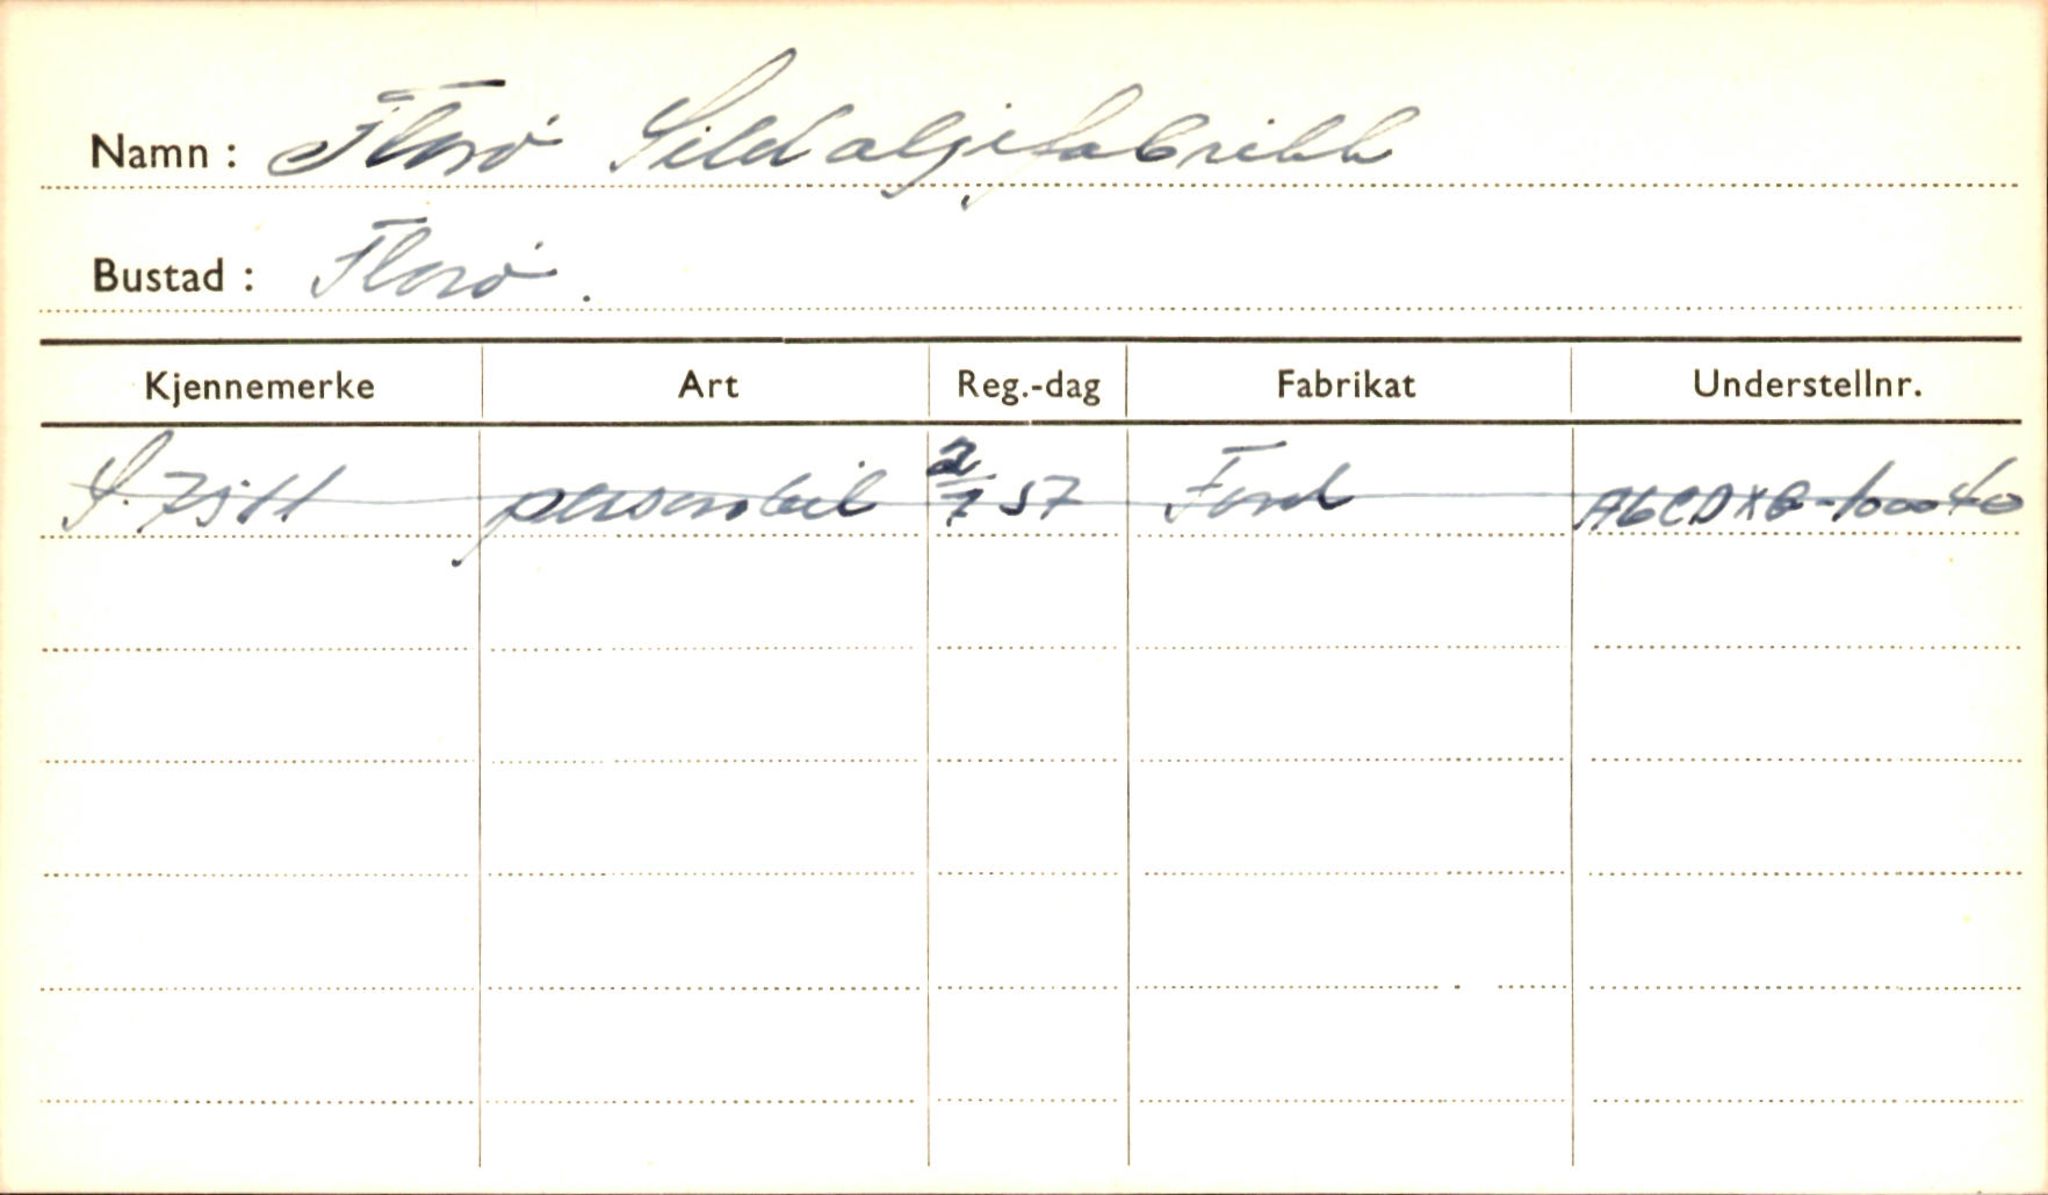 Namn: Florø Sildoljefabrikk
Bustad: Florø.
Kjennemerke Art Reg.-dag Fabrikat Understellnr.
S. 7511 personbil 2/7 57 Ford A6CDXB-100040